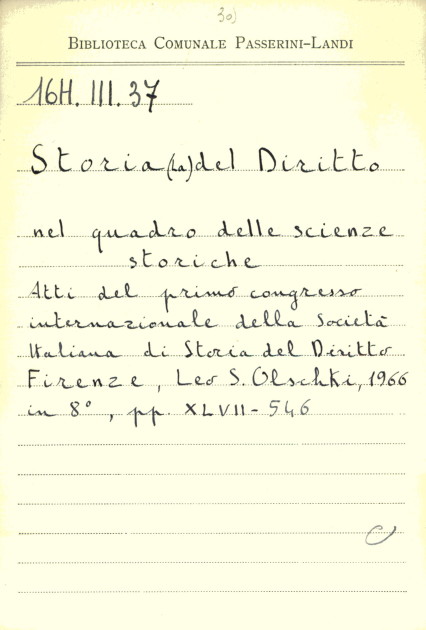 30)
BIBLIOTECA COMUNALE PASSERINI-LANDI
16H. III. 37
Storia (La) del Diritto
nel quadro delle scienze
storiche
Atti del primo congresso
internazionale della Società
Italiana di Storia del Diritto
Firenze, Leo S. Olschki, 1966
in 8°, pp. XLVII - 546